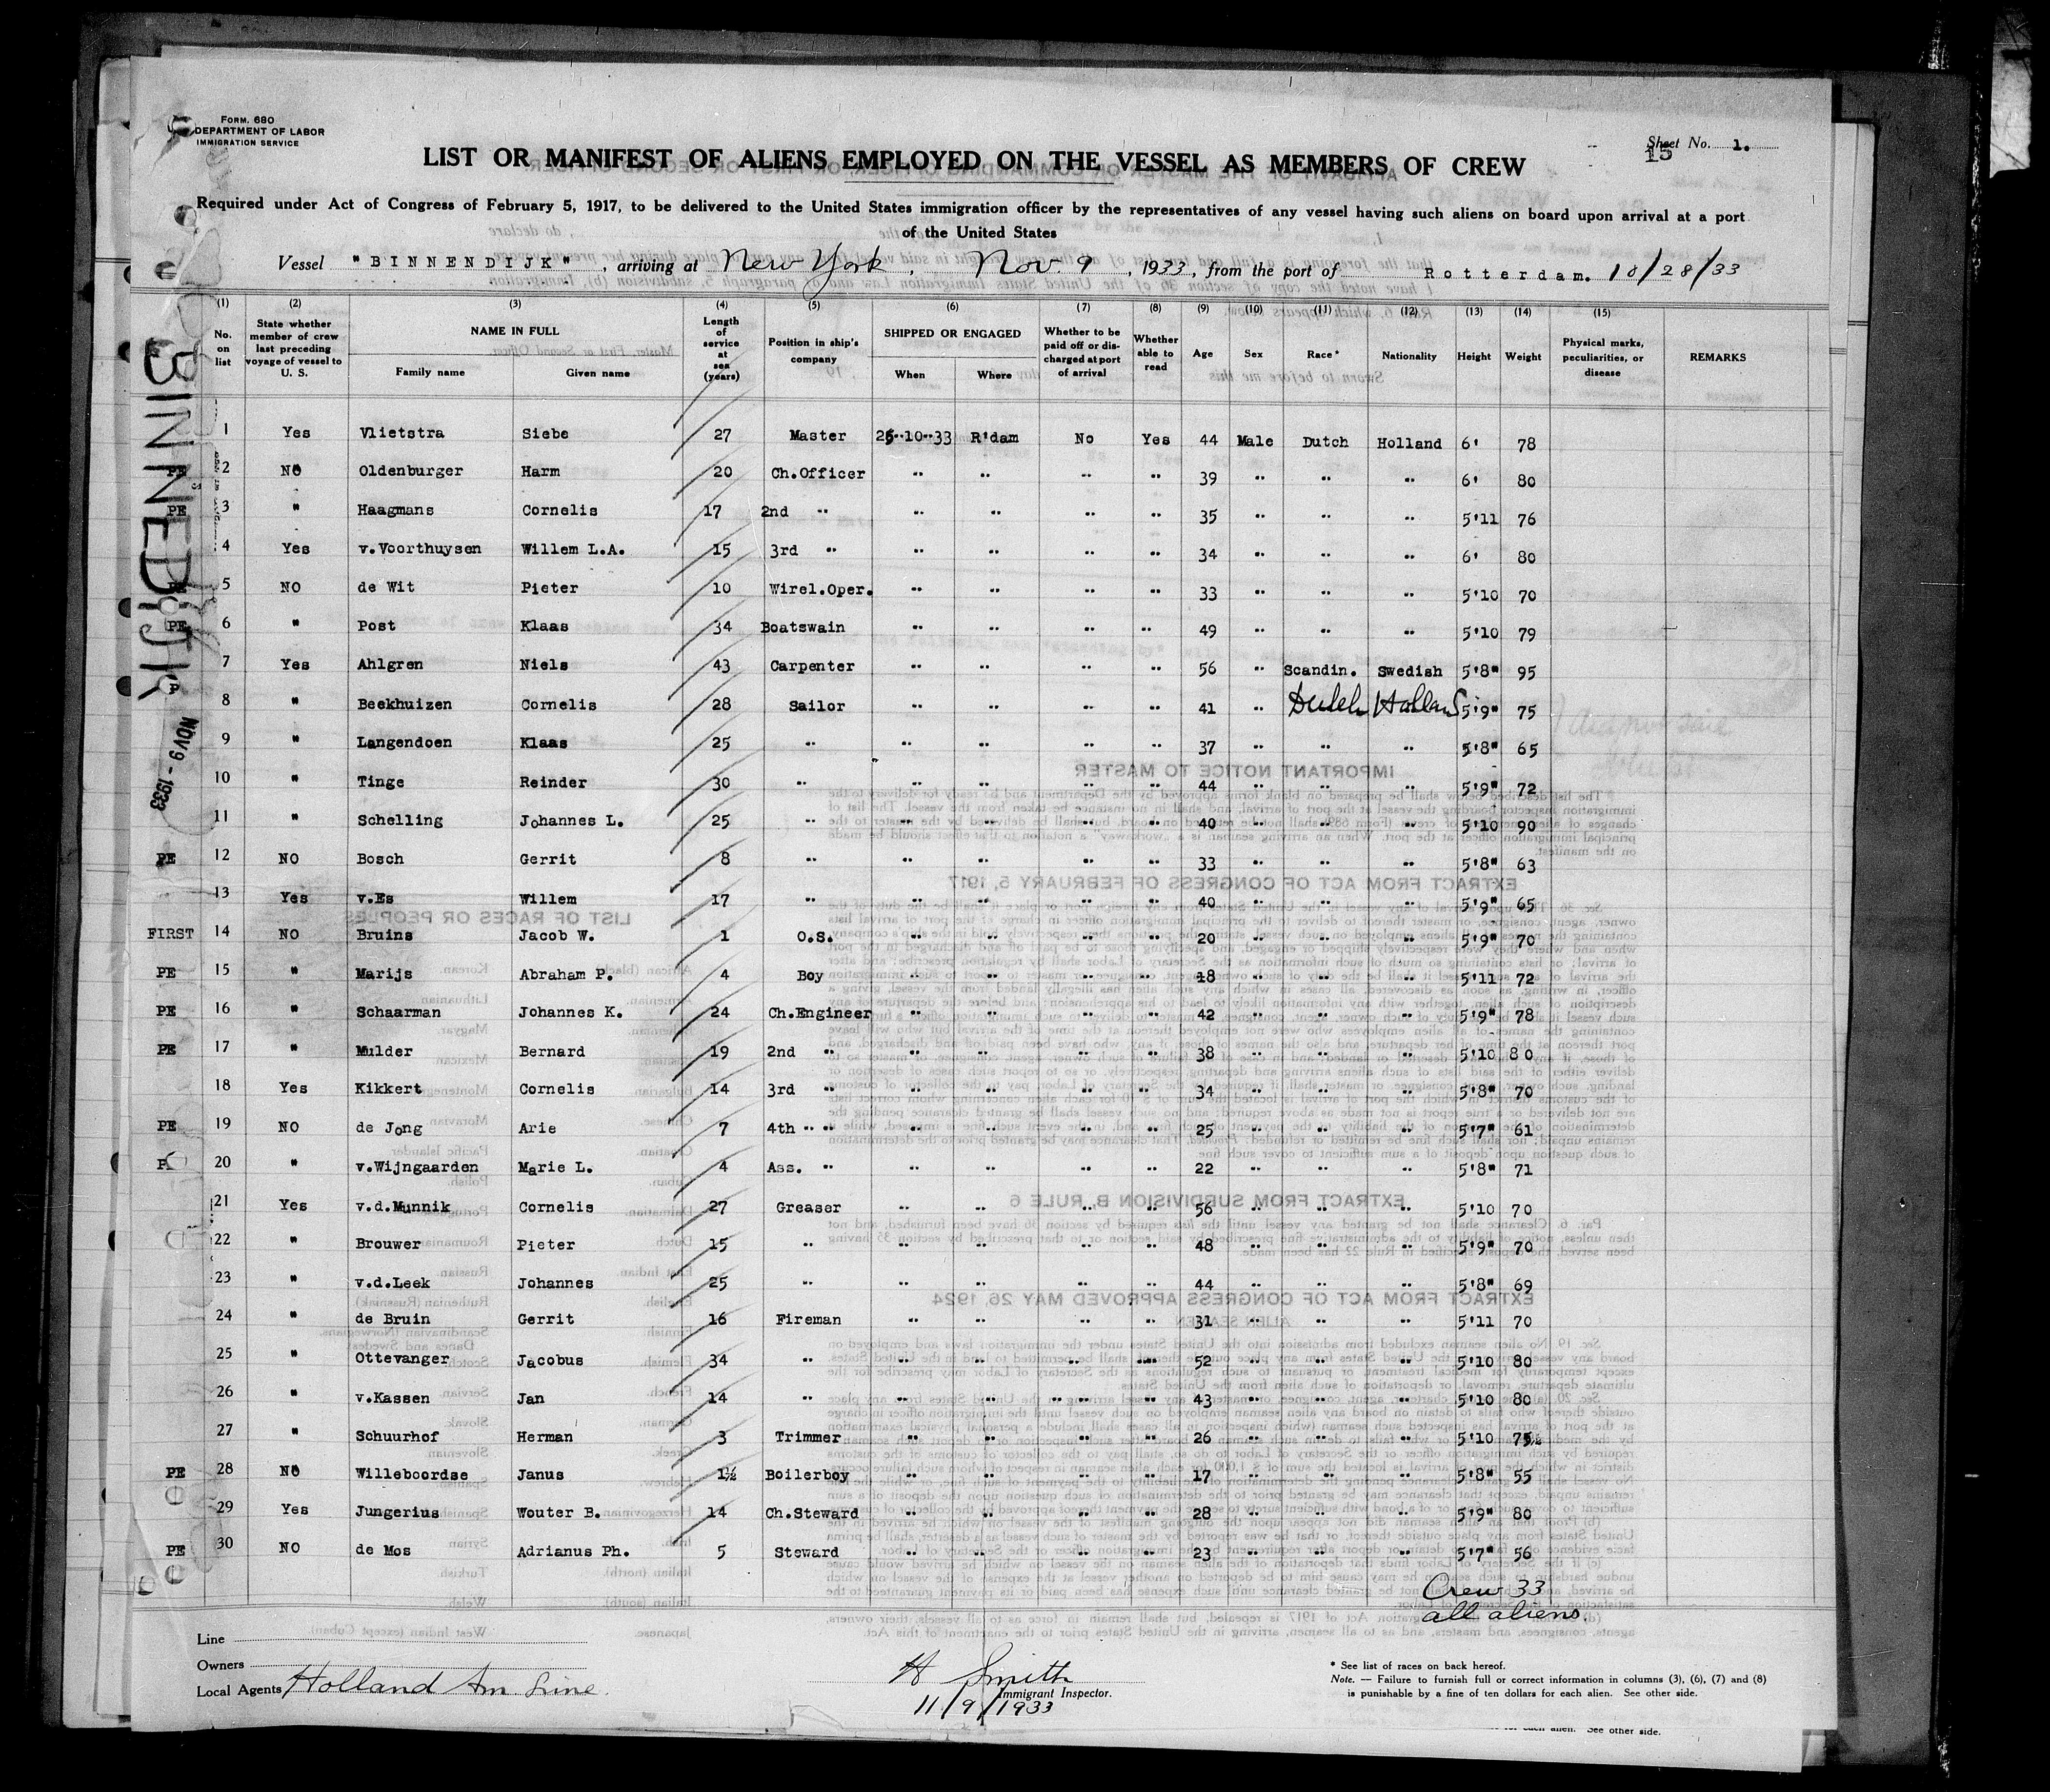 Form. 680
DEPARTMENT OF LABOR
IMMIGRATION SERVICE
Sheet No. 1.
15
LIST OR MANIFEST OF ALIENS EMPLOYED ON THE VESSEL AS MEMBERS OF CREW
Required under Act of Congress of February 5, 1917, to be delivered to the United States immigration officer by the representatives of any vessel having such aliens on board upon arrival at a port
of the United States
Vessel "BINNENDIJK", arriving at New York, Nov. 9, 1933, from the port of Rotterdam. 10/28/33
(1) (2) (3) (4) (5) (6) (7) (8) (9) (10) (11) (12) (13) (14) (15)
No. on list State whether member of crew last preceding voyage of vessel to U. S. NAME IN FULL Family name Given name Length of service at sea (years) Position in ship's company SHIPPED OR ENGAGED When Where Whether to be paid off or discharged at port of arrival Whether able to read Age Sex Race* Nationality Height Weight Physical marks, peculiarities, or disease REMARKS
1 Yes Vlietstra Siebe 27 Master 25-10-33 R'dam No Yes 44 Male Dutch Holland 6' 78
PE 2 NO Oldenburger Harm 20 Ch.Officer " " " " 39 " " " 6' 80
PE 3 " Haagmans Cornelis 17 2nd " " " " " 35 " " " 5'11 76
4 Yes v.Voorthuysen Willem L.A. 15 3rd " " " " " 34 " " " 6' 80
PE 5 NO de Wit Pieter 10 Wirel.Oper. " " " " 33 " " " 5'10 70
PE 6 " Post Klaas 34 Boatswain " " " " 49 " " " 5'10 79
7 Yes Ahlgren Niels 43 Carpenter " " " " 56 " Scandin. Swedish 5'8" 95
8 " Beekhuizen Cornelis 28 Sailor " " " " 41 " Dutch Holland 5'9" 75
9 " Langendoen Klaas 25 " " " " " 37 " " " 5'8" 65
10 " Tinge Reinder 30 " " " " " 44 " " " 5'9" 72
11 " Schelling Johannes L. 25 " " " " " 40 " " " 5'10 90
PE 12 NO Bosch Gerrit 8 " " " " " 33 " " " 5'8" 63
13 Yes v.Es Willem 17 " " " " " 40 " " " 5'9" 65
FIRST 14 NO Bruins Jacob W. 1 O.S. " " " " 20 " " " 5'9" 70
PE 15 " Marijs Abraham P. 4 Boy " " " " 18 " " " 5'11 72
PE 16 " Schaarman Johannes K. 24 Ch.Engineer " " " " 42 " " " 5'9" 78
PE 17 " Mulder Bernard 19 2nd " " " " " 38 " " " 5'10 80
18 Yes Kikkert Cornelis 14 3rd " " " " " 34 " " " 5'8" 70
PE 19 NO de Jong Arie 7 4th " " " " " 25 " " " 5'7" 61
20 " v.Wijngaarden Marie L. 4 Ass. " " " " " 22 " " " 5'8" 71
21 Yes v.d.Munnik Cornelis 27 Greaser " " " " 56 " " " 5'10 70
22 " Brouwer Pieter 15 " " " " " 48 " " " 5'9" 70
23 " v.d.Leek Johannes 25 " " " " " 44 " " " 5'8" 69
24 " de Bruin Gerrit 16 Fireman " " " " 31 " " " 5'11 70
25 " Ottevanger Jacobus 34 " " " " " 52 " " " 5'10 80
26 " v.Kassen Jan 14 " " " " " 43 " " " 5'10 80
27 " Schuurhof Herman 3 Trimmer " " " " 26 " " " 5'10 75½
PE 28 NO Willeboordse Janus 1½ Boilerboy " " " " 17 " " " 5'8" 55
29 Yes Jungerius Wouter B. 14 Ch.Steward " " " " 28 " " " 5'9" 80
PE 30 NO de Mos Adrianus Ph. 5 Steward " " " " 23 " " " 5'7" 56
Crew 33
all aliens.
BINNEDIJK
NOV 9 - 1933
Line
Owners
Local Agents Holland Am. Line.
H Smith
Immigrant Inspector.
11/9/1933
* See list of races on back hereof.
Note. — Failure to furnish full or correct information in columns (3), (6), (7) and (8)
is punishable by a fine of ten dollars for each alien. See other side.
for each alien. See other side.